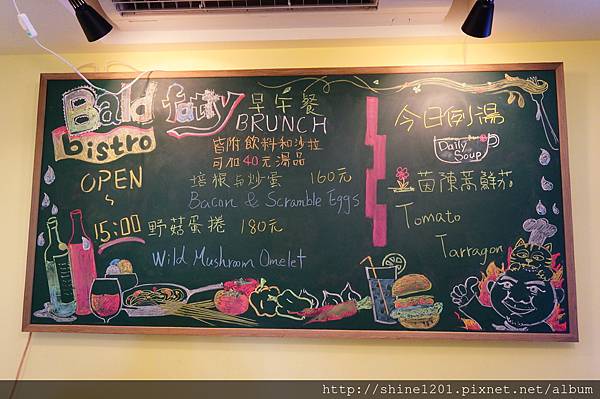 Bald fatty
bistro
OPEN
~
15:00
早午餐
BRUNCH
皆附飲料和沙拉
可加40元湯品
培根与炒雲 160元
Bacon & Scramble Eggs
野菇蛋捲 180元
Wild Mushroom Omelet
今日例湯
Daily
Soup
茵陳蒿鮮茄
Tomato
Tarragon
http://shine1201.pixnet.net/album